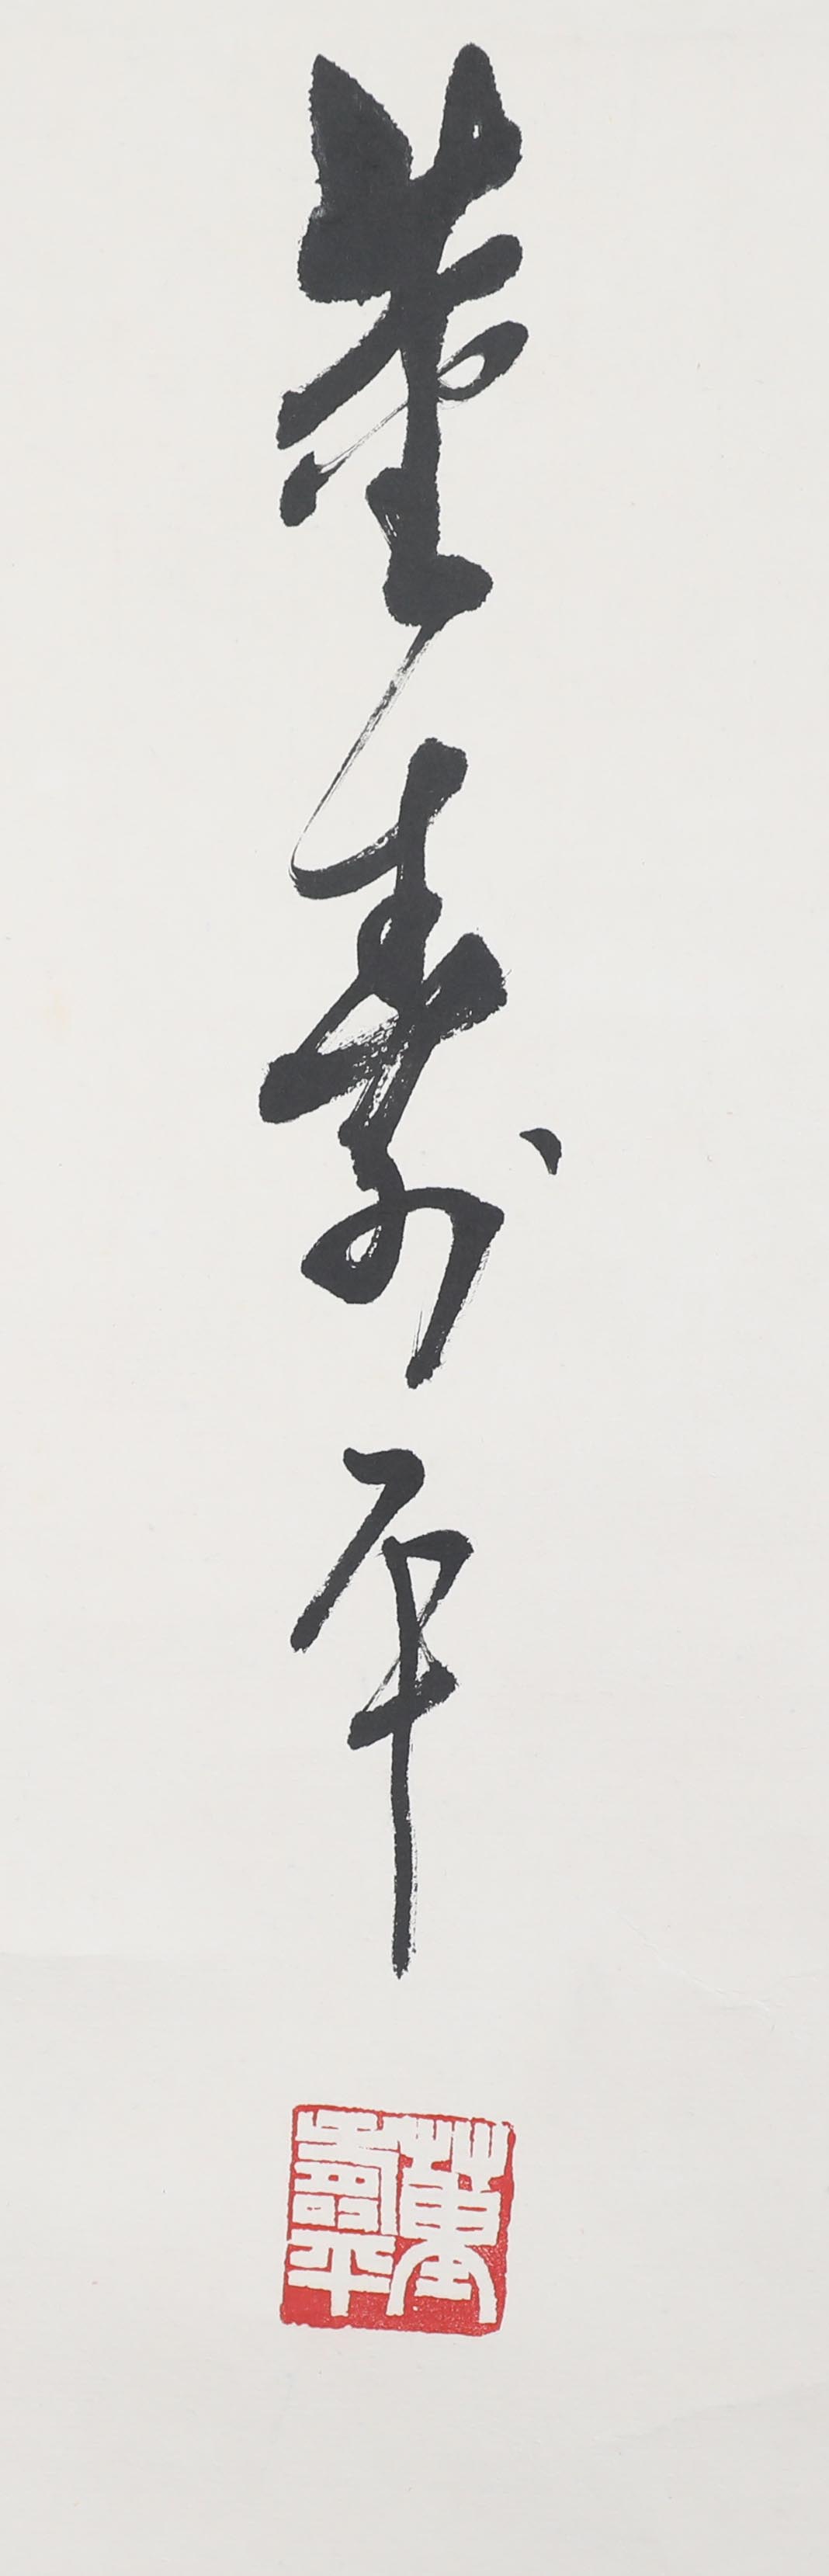 董寿平
董壽平